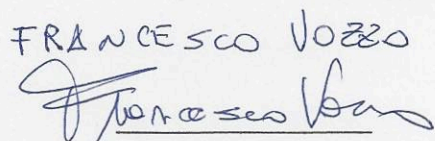 FRANCESCO VOZZO
Francesco Vozzo